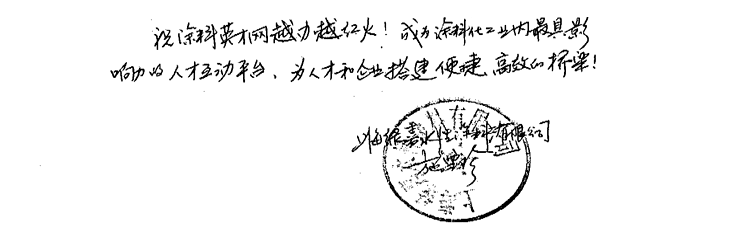 祝涂料英才网越办越红火！成为涂料化工业内最具影
响力的人才互动平台，为人才和企业搭建便捷高效的桥梁！
上海绿嘉水性涂料有限公司